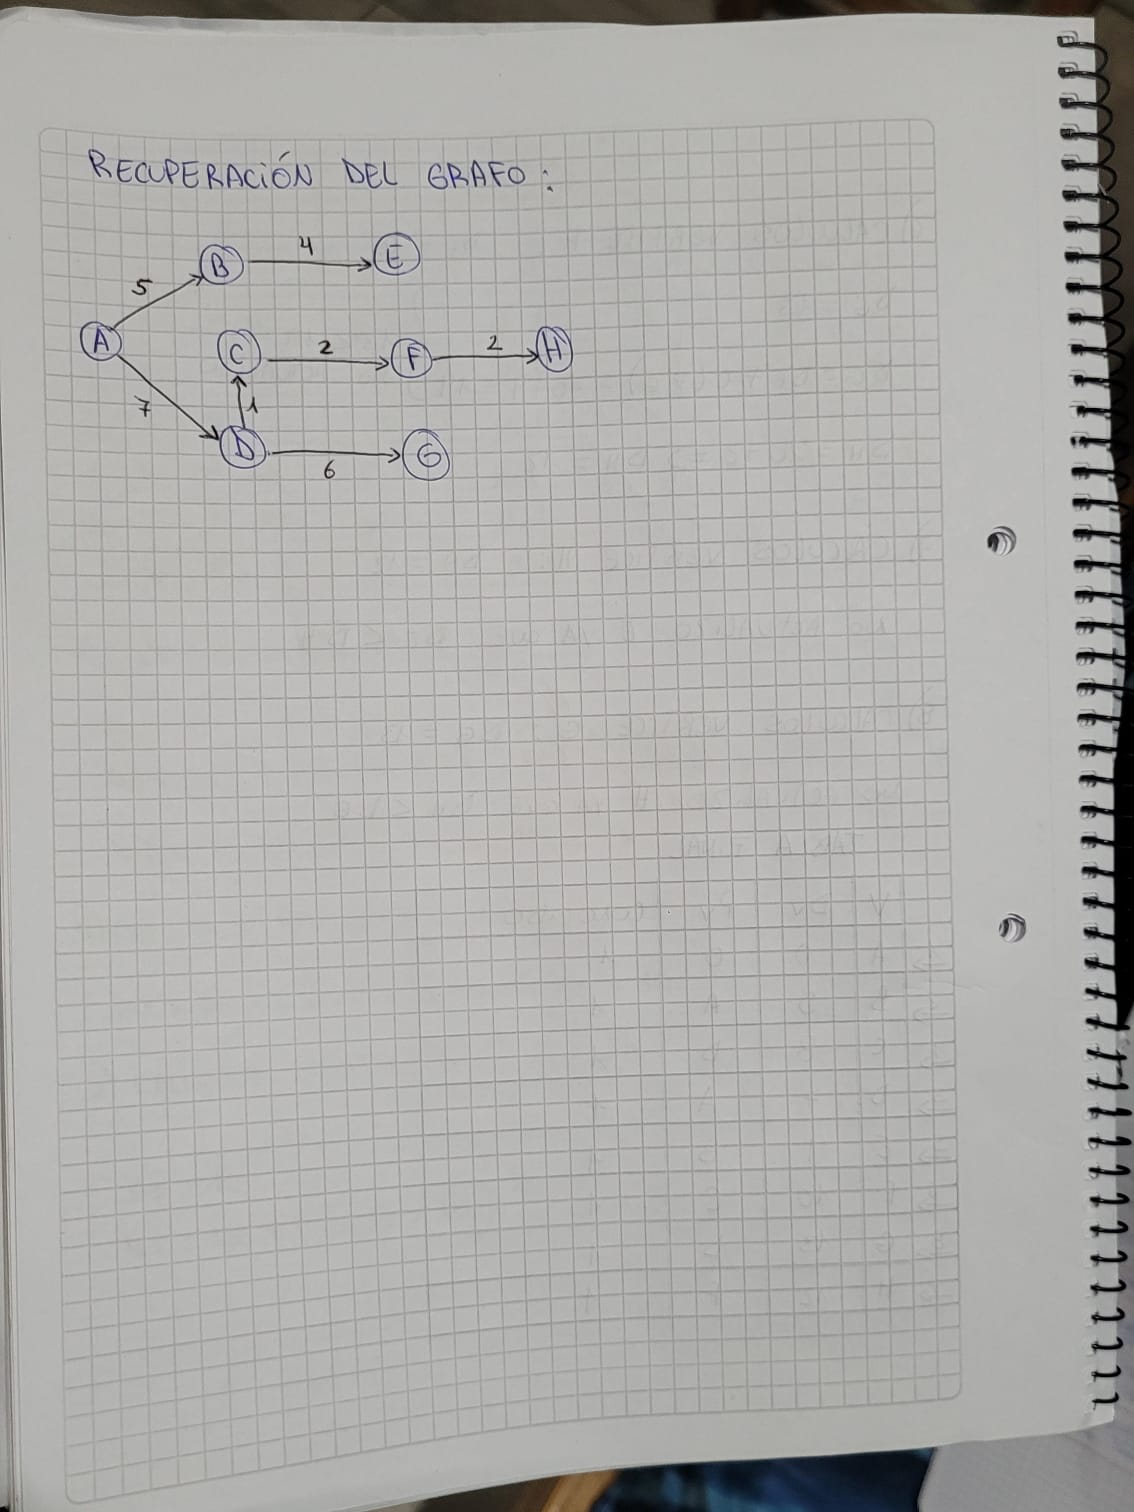 RECUPERACIÓN DEL GRAFO:
B 4 E
5
A C 2 F 2 H
7 1
D 6 G